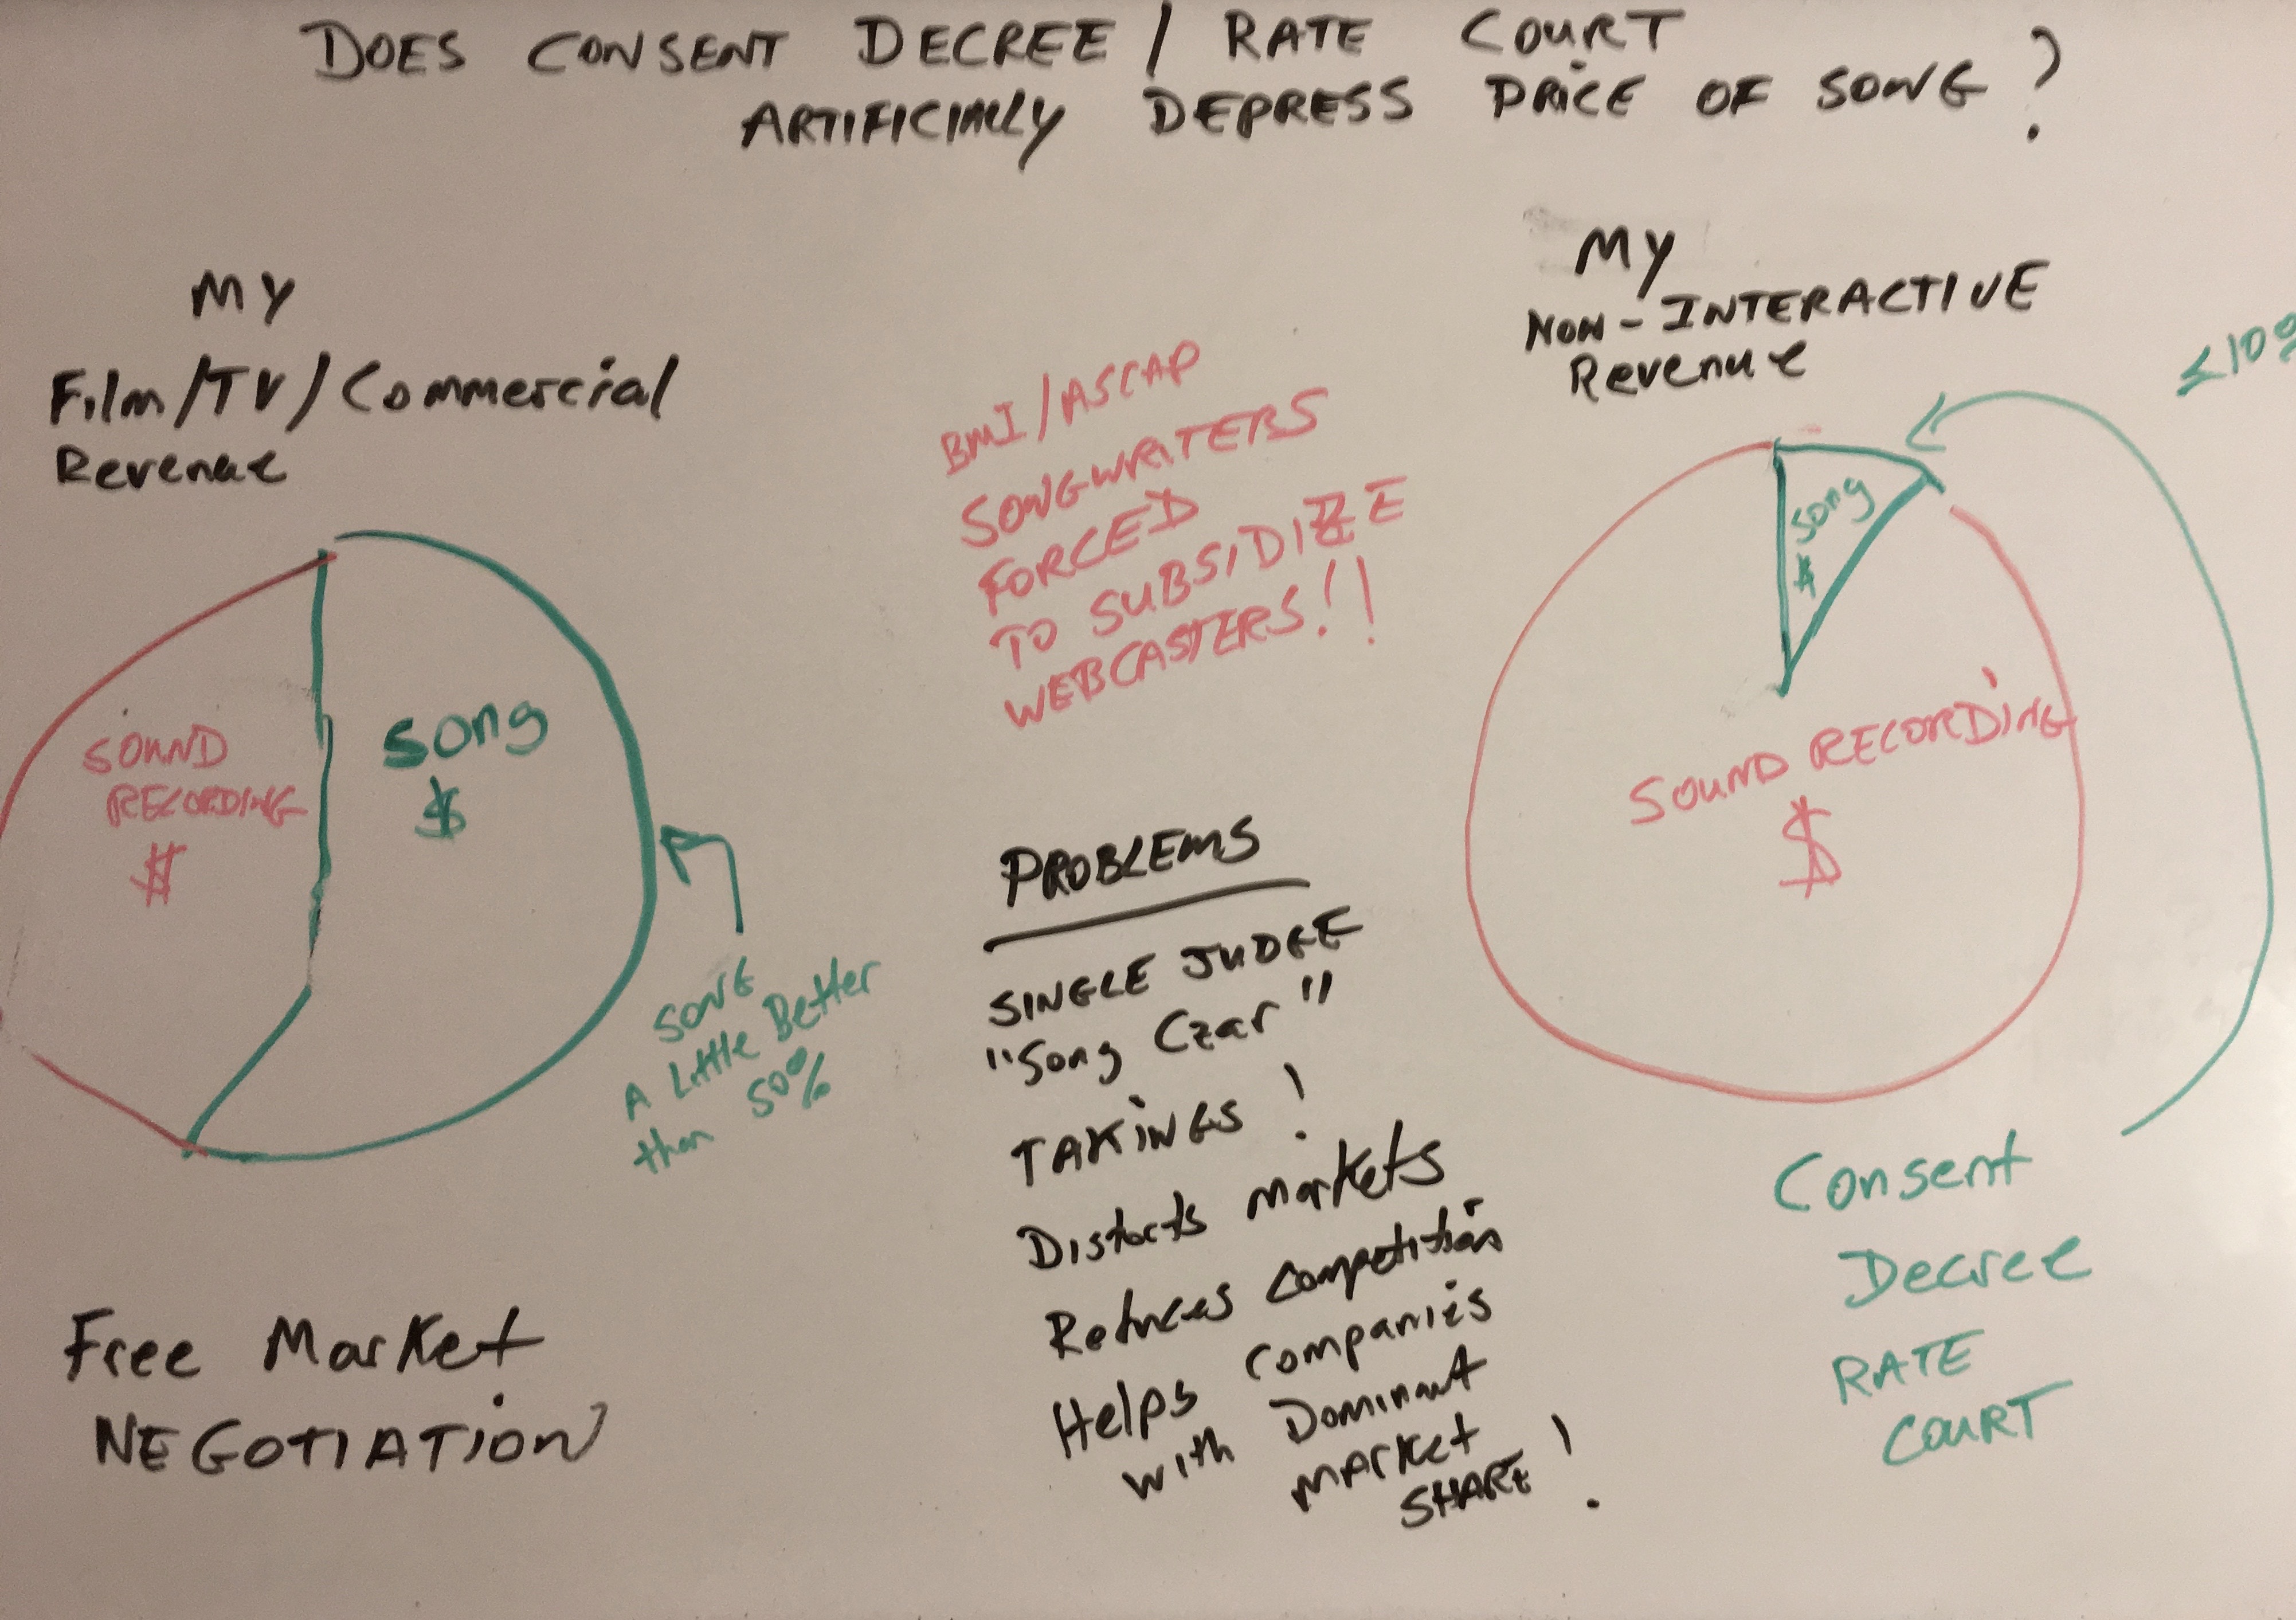 DOES CONSENT DECREE / RATE COURT
ARTIFICIALLY DEPRESS PRICE OF SONG ?
MY
Film/TV/Commercial
Revenue
SOUND
RECORDING
$
Song
$
SONG
A Little Better
than 50%
Free Market
NEGOTIATION
BMI/ASCAP
SONGWRITERS
FORCED
TO SUBSIDIZE
WEBCASTERS!!
PROBLEMS
SINGLE JUDGE
"Song Czar"
TAKINGS !
Distorts markets
Reduces competition
Helps companies
with Dominant
MARKET
SHARE !
MY
NON-INTERACTIVE
Revenue
≤10%
Song
$
SOUND RECORDING
$
Consent
Decree
RATE
COURT